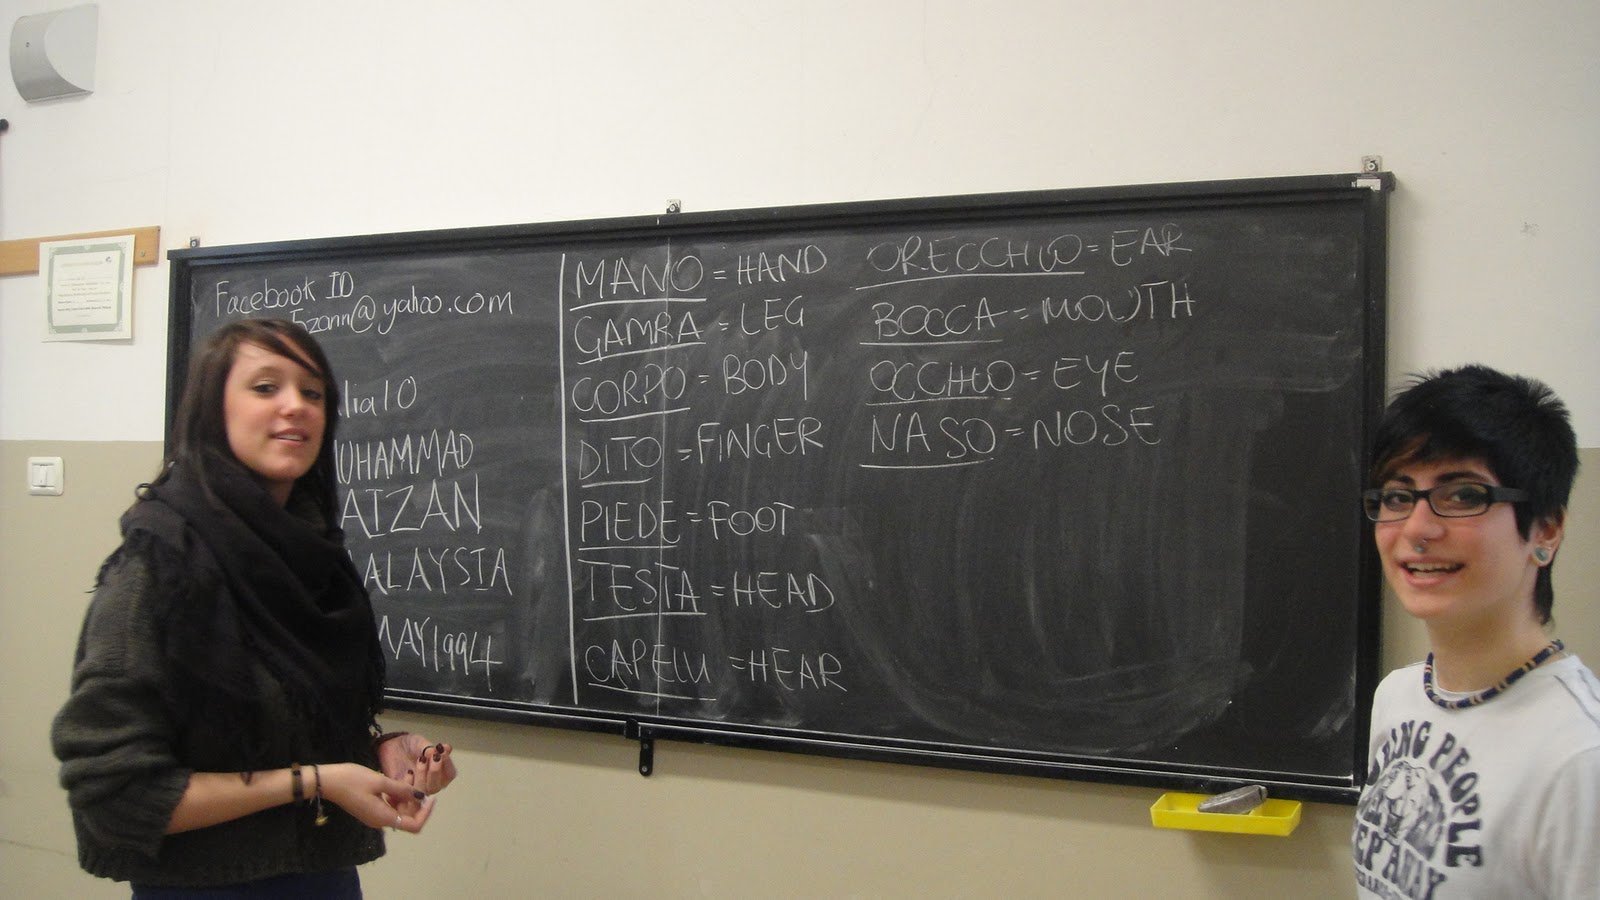 Facebook ID
Ezann@yahoo.com
lia10
UHAMMAD
AIZAN
ALAYSIA
MAY1994
MANO = HAND
GAMBA = LEG
CORPO = BODY
DITO = FINGER
PIEDE = FOOT
TESTA = HEAD
CAPELLI = HEAR
ORECCHIO = EAR
BOCCA = MOUTH
OCCHIO = EYE
NASO = NOSE
PEOPLE
AWAY